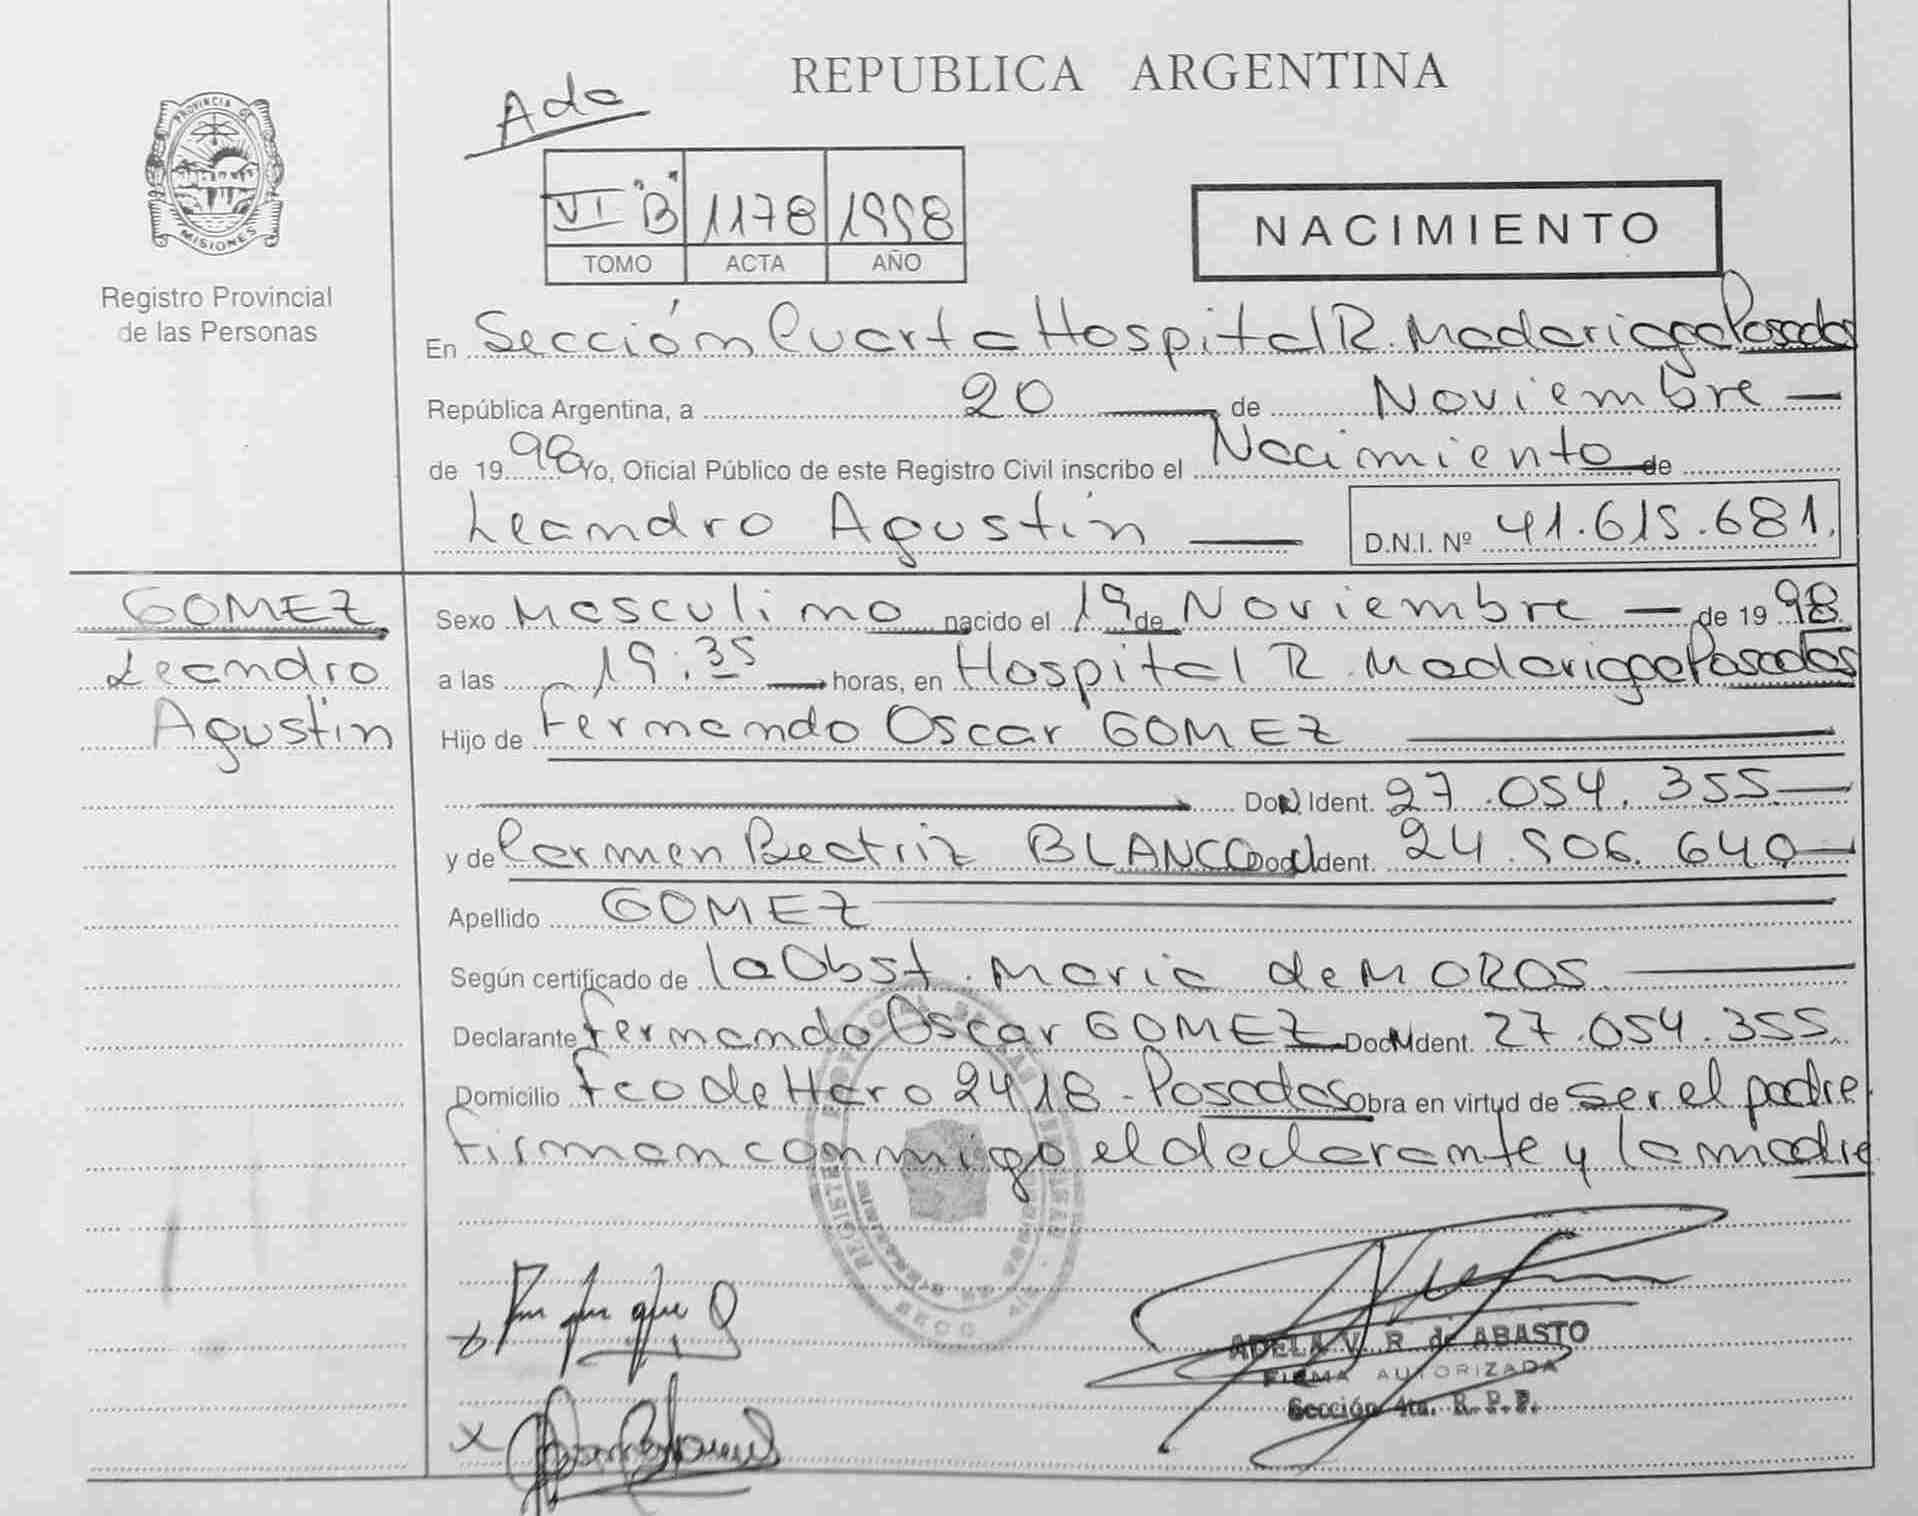 REPUBLICA ARGENTINA
Ada
PROVINCIA DE
MISIONES
Registro Provincial
de las Personas
VI "B" 1178 1998
TOMO ACTA AÑO
NACIMIENTO
En Sección Cuarta Hospital R. Madariaga Posadas
República Argentina, a 20 de Noviembre
de 1998 Yo, Oficial Público de este Registro Civil inscribo el Nacimiento de
Leandro Agustín D.N.I. Nº 41.615.681.
GOMEZ
Leandro
Agustín
Sexo Masculino nacido el 19 de Noviembre de 1998
a las 19:35 horas, en Hospital R. Madariaga Posadas
Hijo de Fernando Oscar GOMEZ
Doc. N. Ident. 27.054.355
y de Carmen Beatriz BLANCO Doc. N. Ident. 24.906.640
Apellido GOMEZ
Según certificado de la Obst. Maria de MOROS
Declarante Fernando Oscar GOMEZ Doc. N. Ident. 27.054.355.
Domicilio Fco de Haro 2418 - Posadas Obra en virtud de ser el padre.
Firman conmigo el declarante y la madre
ADELA V. R. de ABASTO
FIRMA AUTORIZADA
Sección 4ta. R. P. P.